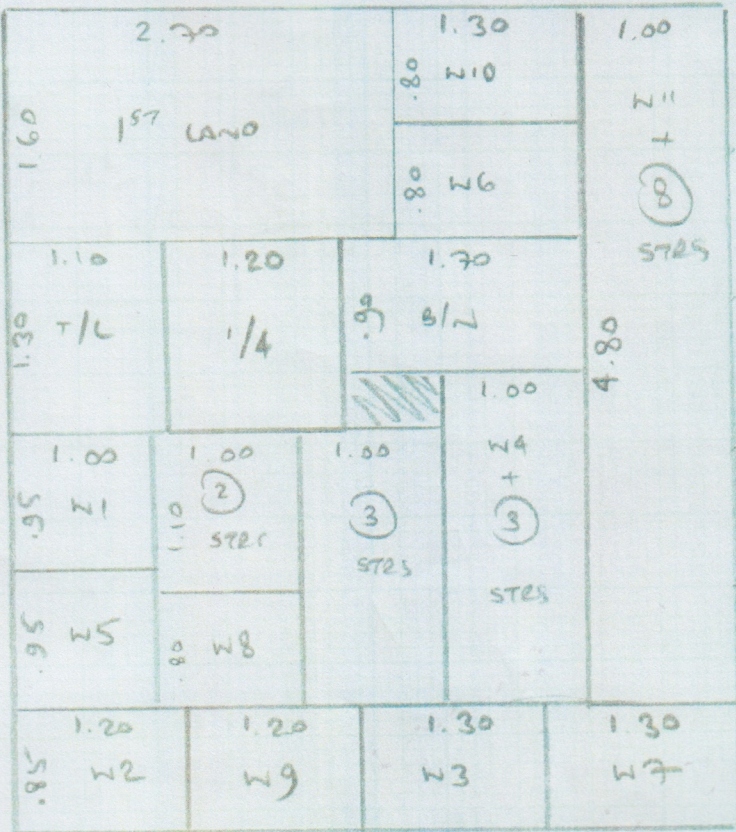 2.70
1.60
1ST LAND
1.30
.80
W10
.80
W6
1.00
W11
+
8
STRS
4.80
1.10
1.30
T/L
1.20
1/4
1.70
.90
B/W
1.00
W4
+
3
STRS
1.00
.95
W1
1.00
2
1.10
STRS
1.00
3
STRS
.95
W5
.80
W8
1.20
.85
W2
1.20
W9
1.30
W3
1.30
W7